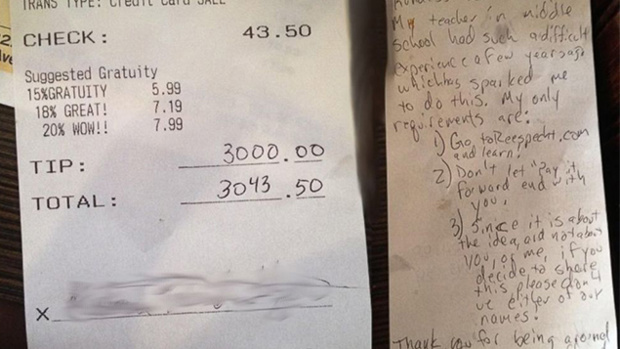 TRANS TYPE: Credit Card SALE
CHECK: 43.50
Suggested Gratuity
15%GRATUITY 5.99
18% GREAT! 7.19
20% WOW!! 7.99
TIP: 3000.00
TOTAL: 3043.50
X
My teacher in middle
school had such a difficult
experience a few years ago
which has sparked me
to do this. My only
requirements are:
1) Go to ReesSpecht.com
and learn!
2) Don't let "Pay it
forward end with
you.
3) Since it is about
the idea, and not about
you, or me, if you
decide to share
this, please don't
use either of our
names.
Thank you for being around